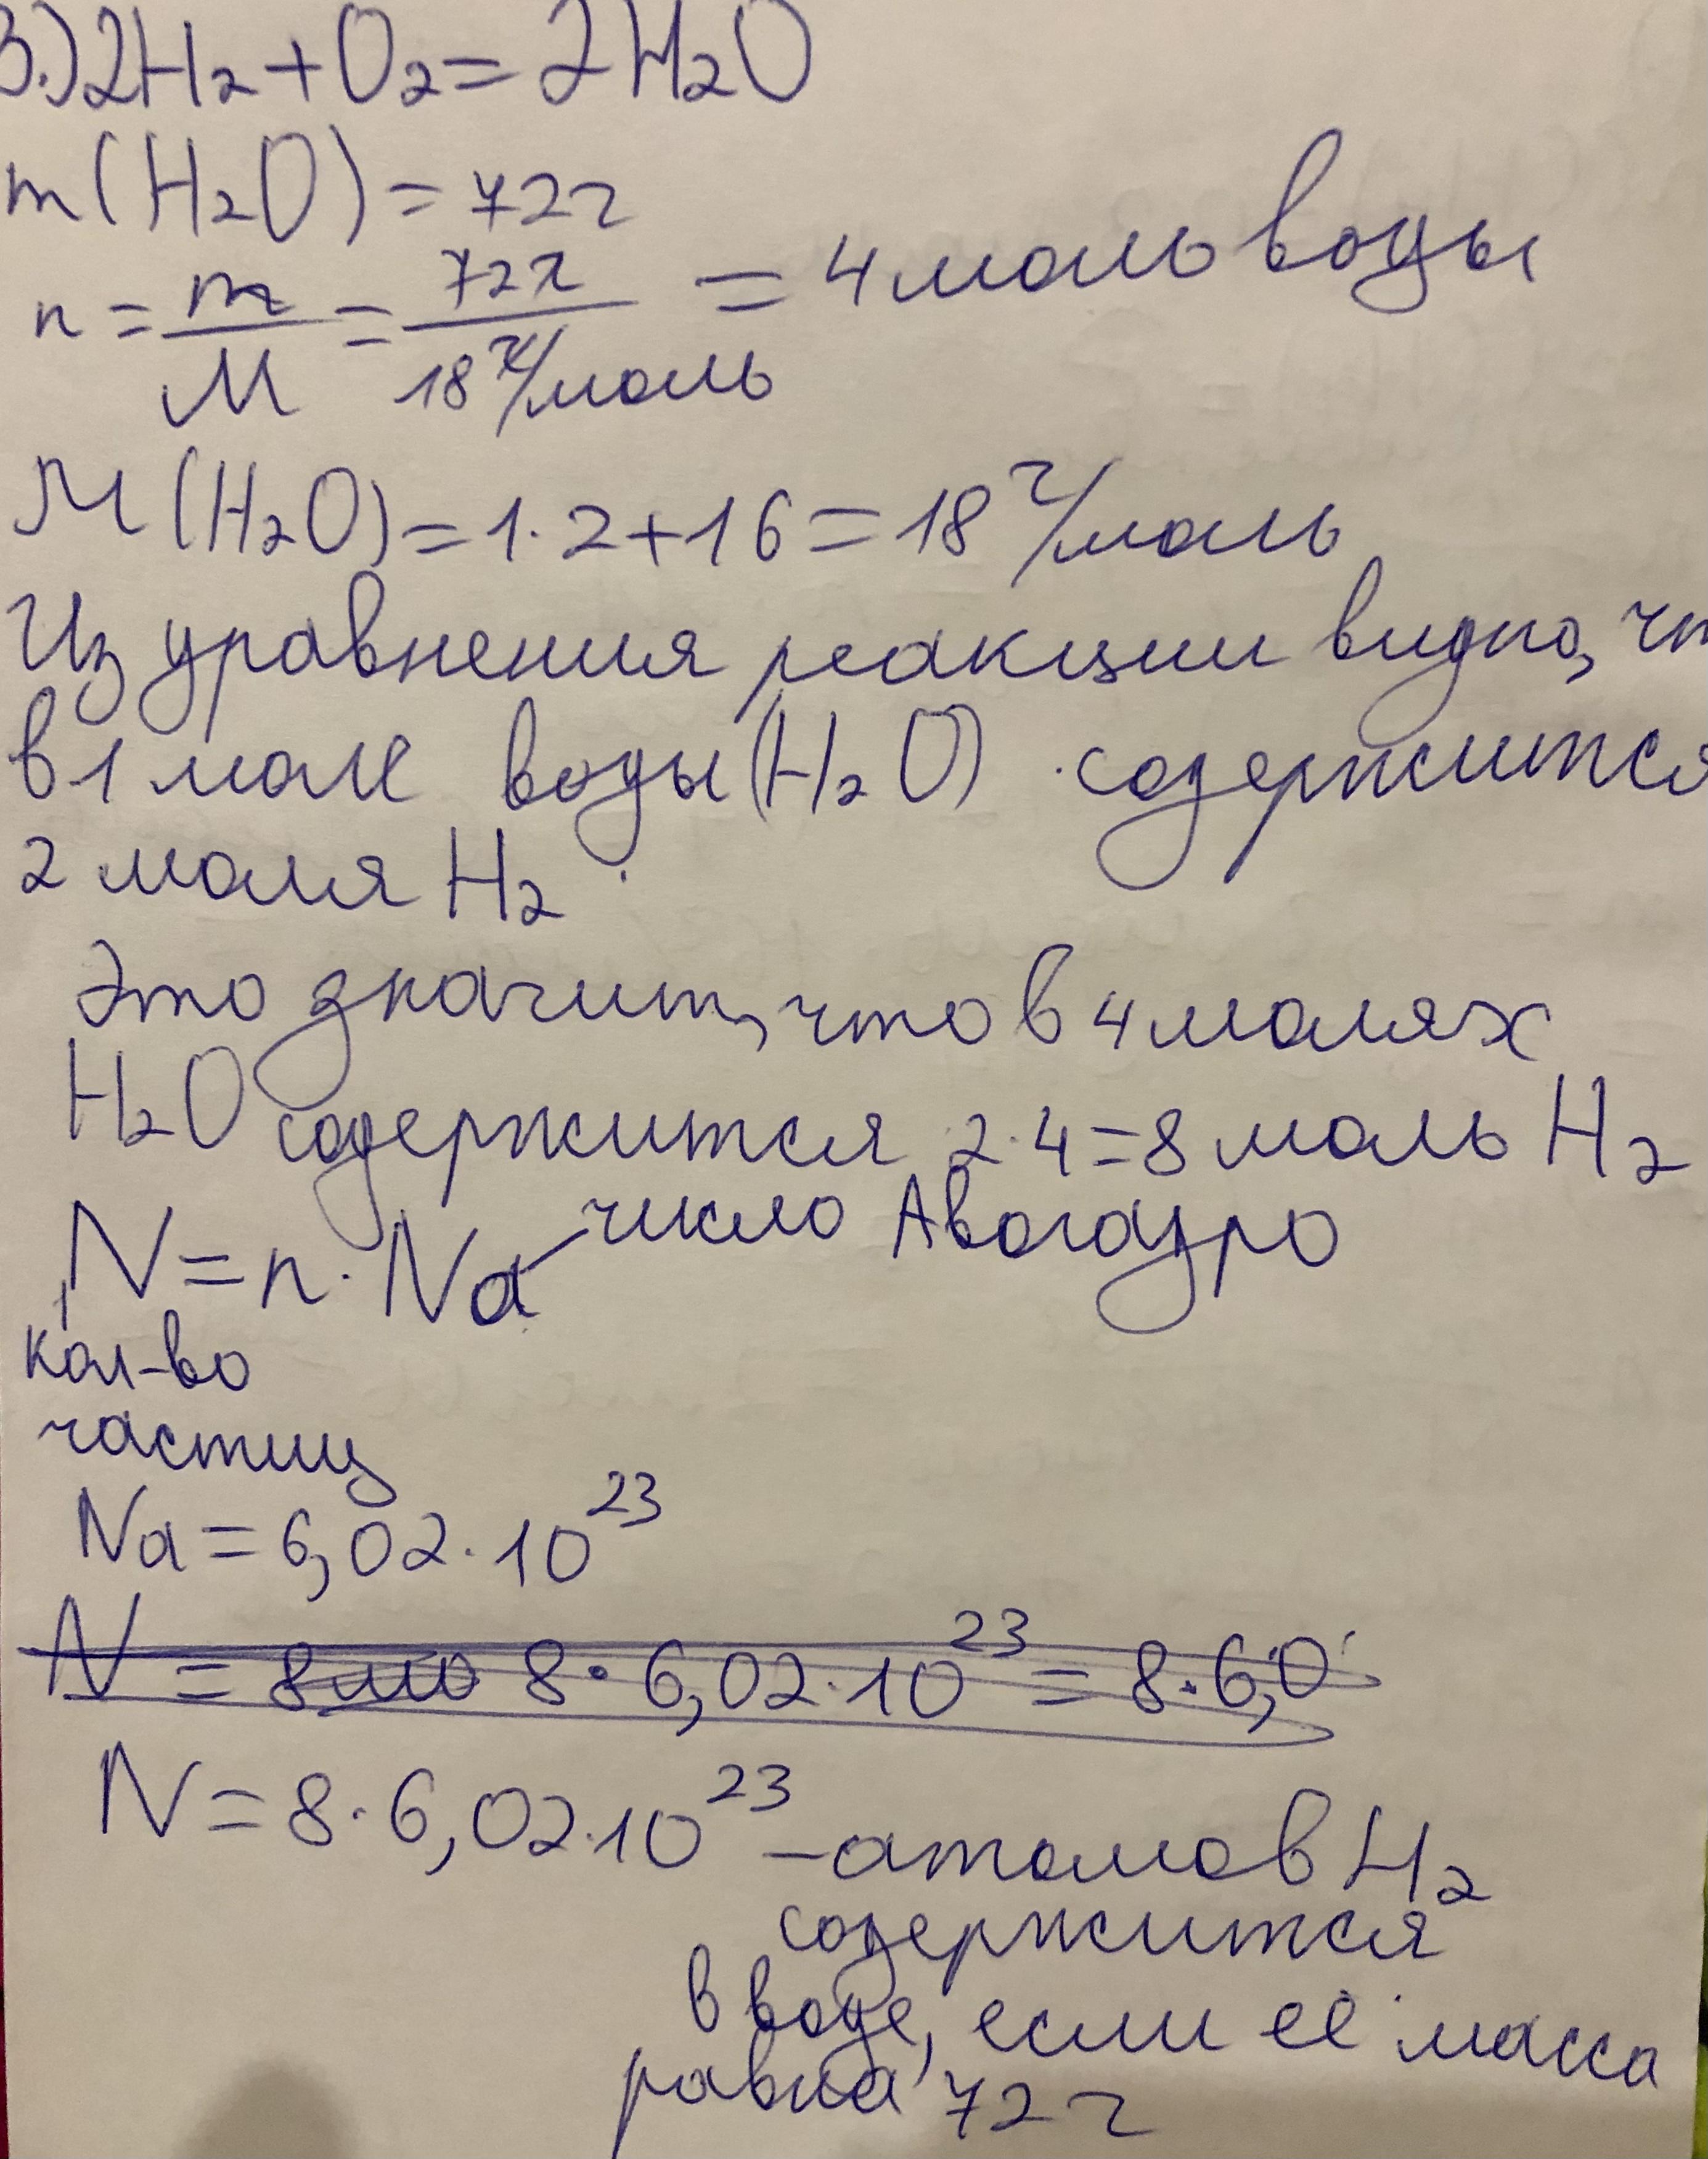 3.) 2H₂+O₂=2H₂O
m(H₂O)=72г
n = m/M = 72г/18г/моль = 4 моль воды
M(H₂O)=1·2+16=18 г/моль
Из уравнения реакции видно, чт
в 1 моле воды (H₂O) содержится
2 моля H₂
Это значит, что в 4 молях
H₂O содержится 2·4=8 моль H₂
N=n·Na число Авогадро
кол-во
частиц
Na=6,02·10²³
N = 8мо 8·6,02·10²³=8·6,0
N=8·6,02·10²³ – атомов H₂
содержится
в воде, если её масса
равна 72 г